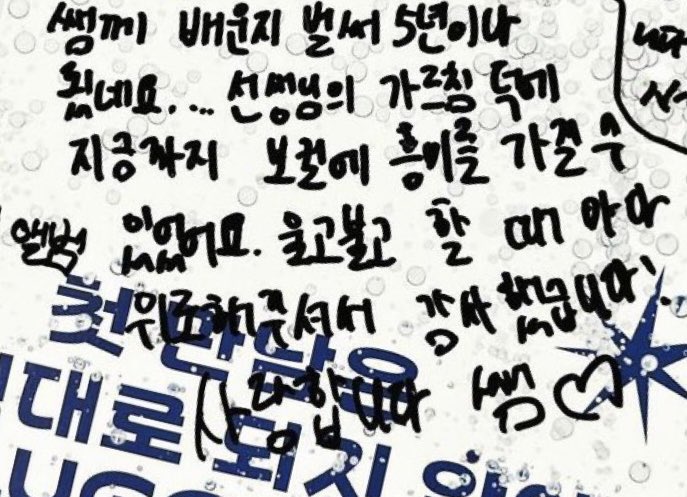 쌤께 배운지 벌써 5년이나
됐네요.... 선생님의 가르침 덕에
지금까지 보컬에 흥미를 가질 수
있었어요. 울고불고 할 때 마다
앨범
위로해주셔서 감사했습니다!
사랑합니다 쌤♡
니다
첫 만남은
대로 되지